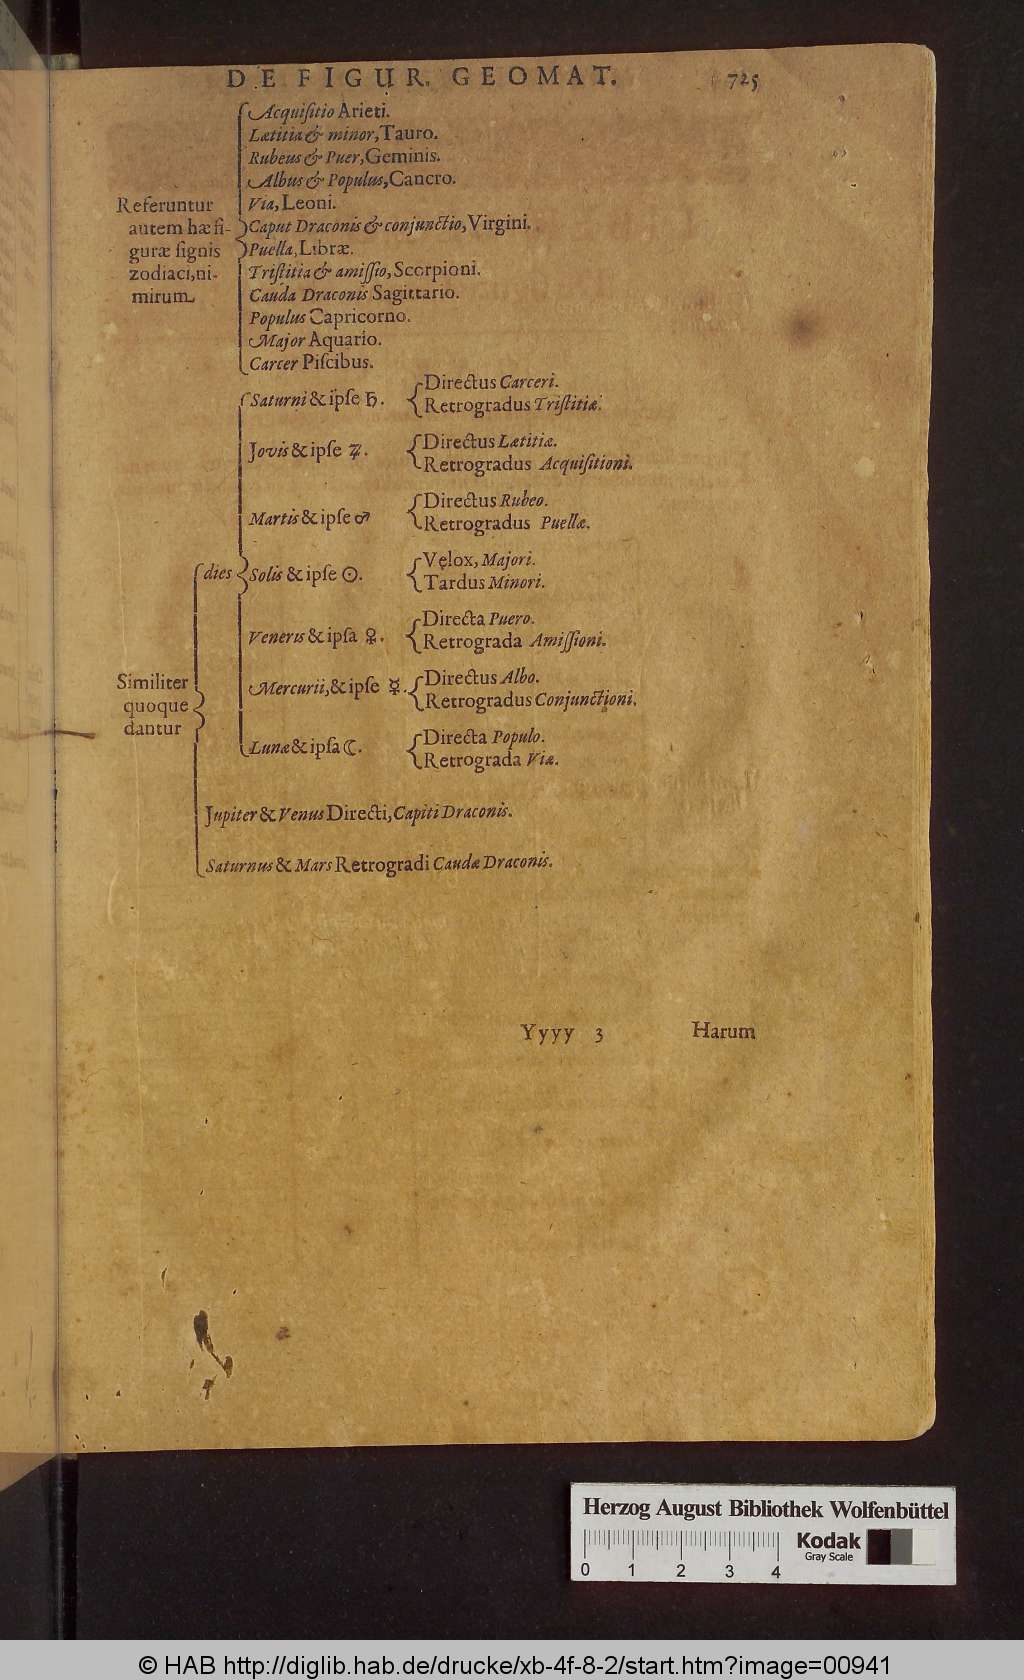 DE FIGUR. GEOMAT. 725
Referuntur
autem hæ fi-
guræ ſignis
zodiaci, ni-
mirum
Acquiſitio Arieti.
Lætitia & minor, Tauro.
Rubeus & Puer, Geminis.
Albus & Populus, Cancro.
Via, Leoni.
Caput Draconis & conjunctio, Virgini.
Puella, Libræ.
Triſtitia & amiſſio, Scorpioni.
Cauda Draconis Sagittario.
Populus Capricorno.
Major Aquario.
Carcer Piſcibus.
Similiter
quoque
dantur
dies
Saturni & ipſe ♄.
Directus Carceri.
Retrogradus Triſtitiæ.
Jovis & ipſe ♃.
Directus Lætitiæ.
Retrogradus Acquiſitioni.
Martis & ipſe ♂
Directus Rubeo.
Retrogradus Puellæ.
Solis & ipſe ☉.
Velox, Majori.
Tardus Minori.
Veneris & ipſa ♀.
Directa Puero.
Retrograda Amiſſioni.
Mercurii, & ipſe ☿.
Directus Albo.
Retrogradus Conjunctioni.
Lunæ & ipſa ☾.
Directa Populo.
Retrograda Viæ.
Jupiter & Venus Directi, Capiti Draconis.
Saturnus & Mars Retrogradi Caudæ Draconis.
Yyyy 3 Harum
Herzog August Bibliothek Wolfenbüttel
Kodak
Gray Scale
0 1 2 3 4
© HAB http://diglib.hab.de/drucke/xb-4f-8-2/start.htm?image=00941